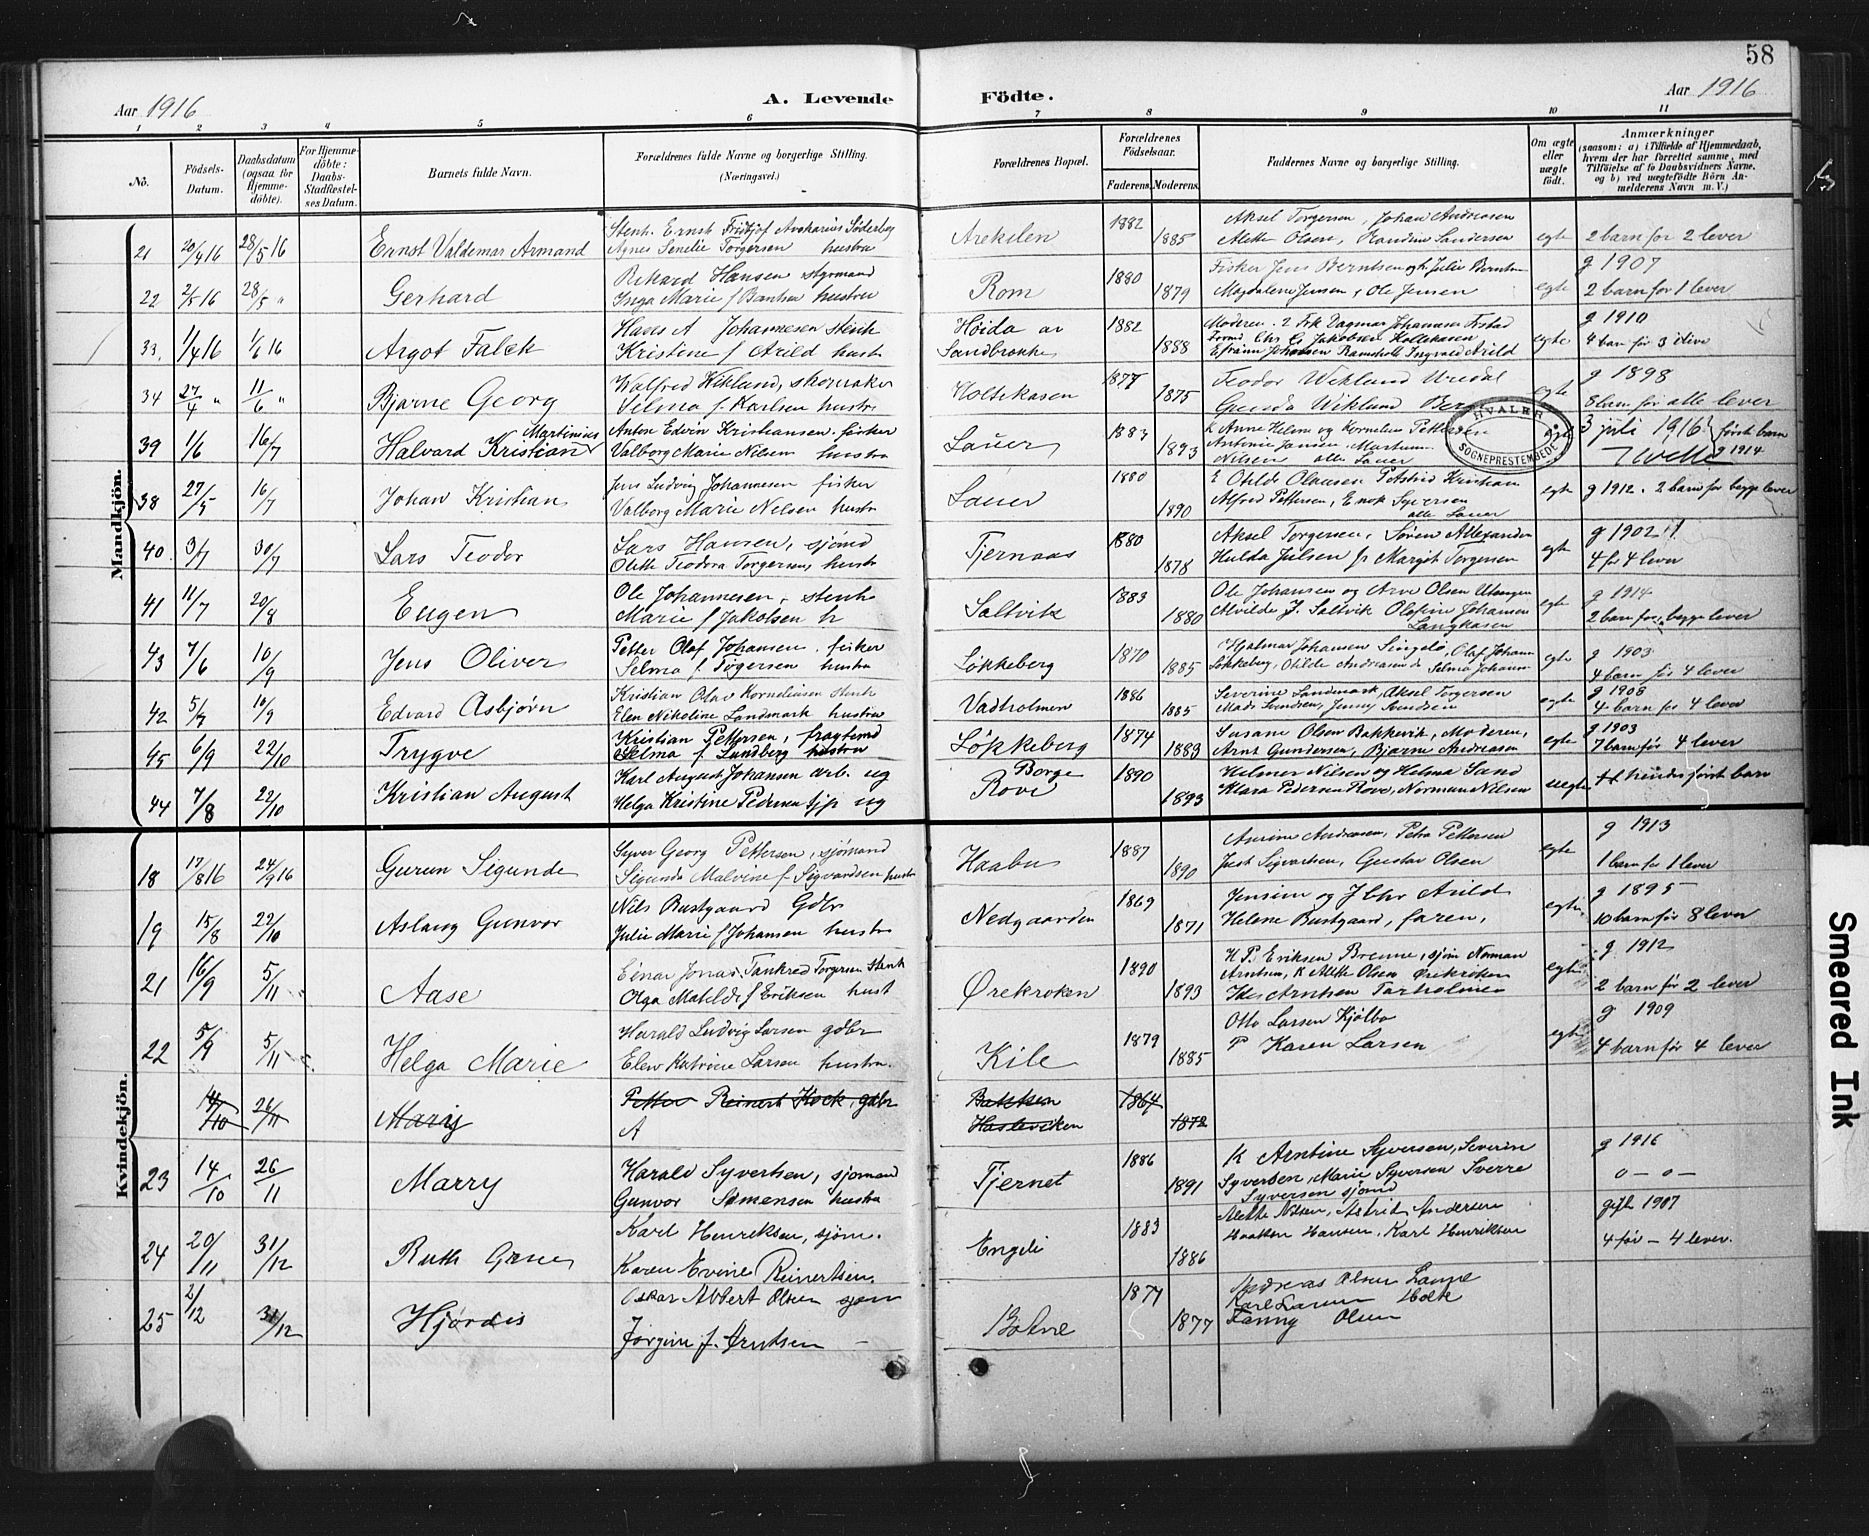 58
Aar 1916
A. Levende Födte.
Aar 1916
1 2 3 4 5 6 7 8 9 10 11
No.
Födsels-Datum.
Daabsdatum (ogsaa for Hjemmedöbte).
For Hjemmedöbte: Daabs-Stadfæstelses Datum.
Barnets fulde Navn.
Forældrenes fulde Navne og borgerlige Stilling. (Næringsvei.)
Forældrenes Bopæl.
Forældrenes Födselsaar.
Faderens. Moderens.
Faddernes Navne og borgerlige Stilling.
Om ægte eller uægte födt.
Anmærkninger (saasom: a) i Tilfælde af Hjemmedaab, hvem der har forrettet samme, med Tilföielse af to Daabsvidners Navne, og b) ved uægtefödte Börn Anmelderens Navn m. V.)
Mandkjön.
21 20/4 16 28/5 16 Ernst Valdemar Armand
Stenh. Ernst Fridtjof Söderberg
Agnes Torgersen hustru
Arekilen 1882 1885
Aksel Torgersen, Johan Andreasen
Alette Olsen, Gundersen
egte 2 barn før 2 lever
22 2/5 16 28/5 " Gerhard
Rikard Hansen styrmand
Inga Marie f Berntsen hustru
Rom 1880 1879
Fisker Jens Berntsen og h. Julie Berntsen
Magdalene Jensen, Ole Jensen
egte g 1907
2 barn før 1 lever
33. 1/4 16 1/6 16 Argot Falck
Hans A Johannesen stenh
Kristine f Arild hustr
Høida av Sandbrekke 1882 1888
Moderen. 2 Frk Dagmar Johannesen
Jakobsen Holtekasen
Efraim Johansen Ramsholt Ingvald Arild
egte g 1910
4 barn før 3 ilive
34 27/4 " 11/6 " Bjarne Georg
Walfred Wiklund, skomaker
Selma f. Karlsen hustr
Holtekasen 1877 1875
Teodor Wiklund Uredal
Gunda Wiklund
egte g 1898
8 barn før alle lever
HVALER SOGNEPRESTEMBEDE
39 1/6 16/7 Halvard Kristian Martinius
Anton Edvin Kristiansen. fisker
Valborg Marie Nilsen hustru
Lauer 1883 1893
K Anne Helene og Kornelius Pettersen
Antonie Jansen, Martinus
Nilsen alle Lauer
egte 3 juli 1916 første barn
1914
38 27/5 16/7 Johan Kristian
Jens Ludvig Johannesen fisker
Valborg Marie Nelsen hustr
Lauer 1880 1890
E Otilde Olausen P Astrid Kristian
Alfred Pettersen, Enok Syversen
alle Lauer
egte g 1912. 2 barn før begge lever
40. 3/7 30/7 Lars Teodor
Lars Hansen, sjömd
Oleth Teodora Torgersens hustr
Tjernaas 1880 1878
Aksel Torgersen, Søren Allexander
Hulda Julsen fr Margit Torgersen
egte g 1902
4 før 4 lever
41 11/7 20/8 Eugen
Ole Johannesen, stenh
Marie f Jakobsen h
Saltvik 1883 1880
Ole Johansen og Arve Olsen Utengen
Alvilde J. Saltvik Olefine Johansen
Langkasen
egte g 1914
2 barn før, begge lever
43 7/6 10/9 Jens Oliver
Petter Olaf Johansen. fisker
Selma f Torgersen hustru
Løkkeberg 1870 1885
Hjalmar Johansen Singelö, Olaf Johan
Løkkeberg, Otilde Andreasen Selma Johann
egte g 1903
4 barn før 4 lever
42 5/7 10/9 Edvard Asbjørn
Kristian Olav Korneliusen stenh
Elen Nikoline Landmark hustru
Vadholmen 1886 1885
Severine Landmark, Aksel Torgersen
Mads Svendsen, Jenny Svendsen
egte g 1908
4 barn før 4 lever
45 6/9 22/10 Trygve
Kristian Pettersen, fragtemd
Selma f. Lundberg hustru
Løkkeberg 1874 1883
Susann Olsen Bakkevik, Moderen,
Arnt Gundersen, Bjarne Andreasen
egte g 1903
7 barn før 4 lever
44 7/8 22/10 Kristian August
Karl August Johansen arb. ug
Helga Kristine Pedersen tjp ug
Borge
Rove 1890 1893
Helmer Nilsen og Helma Sand
Klara Pedersen Rove, Norman Nilsen
uegte hendes först barn
Kvindekjön.
18 17/8 16 24/9 16 Gurun Sigunde
Syver Georg Pettersen, sjømand
Sigunda Malvine f. Sigvardsen hustr
Haabu 1887 1890
Andreasen, Petra Pettersen
Just Sigvartsen, Gustav Olsen
egte g 1913
1 barn før 1 lever
19 15/8 22/10 Aslaug Gunvor
Nils Bustgaard Gdbr
Julie Marie f Johansen hustr
Nedgaarden 1869 1871
Jensine og J Chr Arild
Helene Bustgaard, faren,
egte g 1895
10 barn før 8 lever
21 16/9 5/11 Aase
Einar Jonas Tankred Torgersen stenh
Olga Matilde f Eriksen hust
Ørekroken 1890 1893
H P. Eriksen Brenne, sjöm Norman
Arntsen, K Alette Olsen Ørekroken
Arntsen
egte g. 1912
2 barn før 2 lever
22 5/9 5/11 Helga Marie
Harald Ludvig Larsen gdbr
Elen Katrine Larsen hustru.
Kile 1879 1885
Otto Larsen Kjølbo
P Karen Larsen
egte g 1909
4 barn før 4 lever
14/10 26/11 Marry
Petter Reinert Kock, gdbr
A
Bakken
Haslevikken 1864 1872
23 14/10 26/11 Marry
Harald Syvertsen, sjömand
Gunvor Simensen hustru
Tjernet 1886 1891
K Arntine Syversen, Severin
Syversen, Marie Syversen Sverre
Syversen sjömd
g 1916
0 – 0 –
24 20/11 31/12 Ruth
Karl Henriksen, sjöm.
Karen Evine Reinertsen.
Engeli 1883 1886
Alette Nilsen, Astrid Andersen
Hansen, Karl Henriksen
gift 1907
4 før – 4 lever.
25 2/12 31/12 Hjørdis
Oskar Albert Olsen sjöm
Jørgine f. Arntsen –
Bølne 1874 1877
Andreas Olsen Lauve
Karl Larsen Holte
Fanny Olsen
Smeared Ink